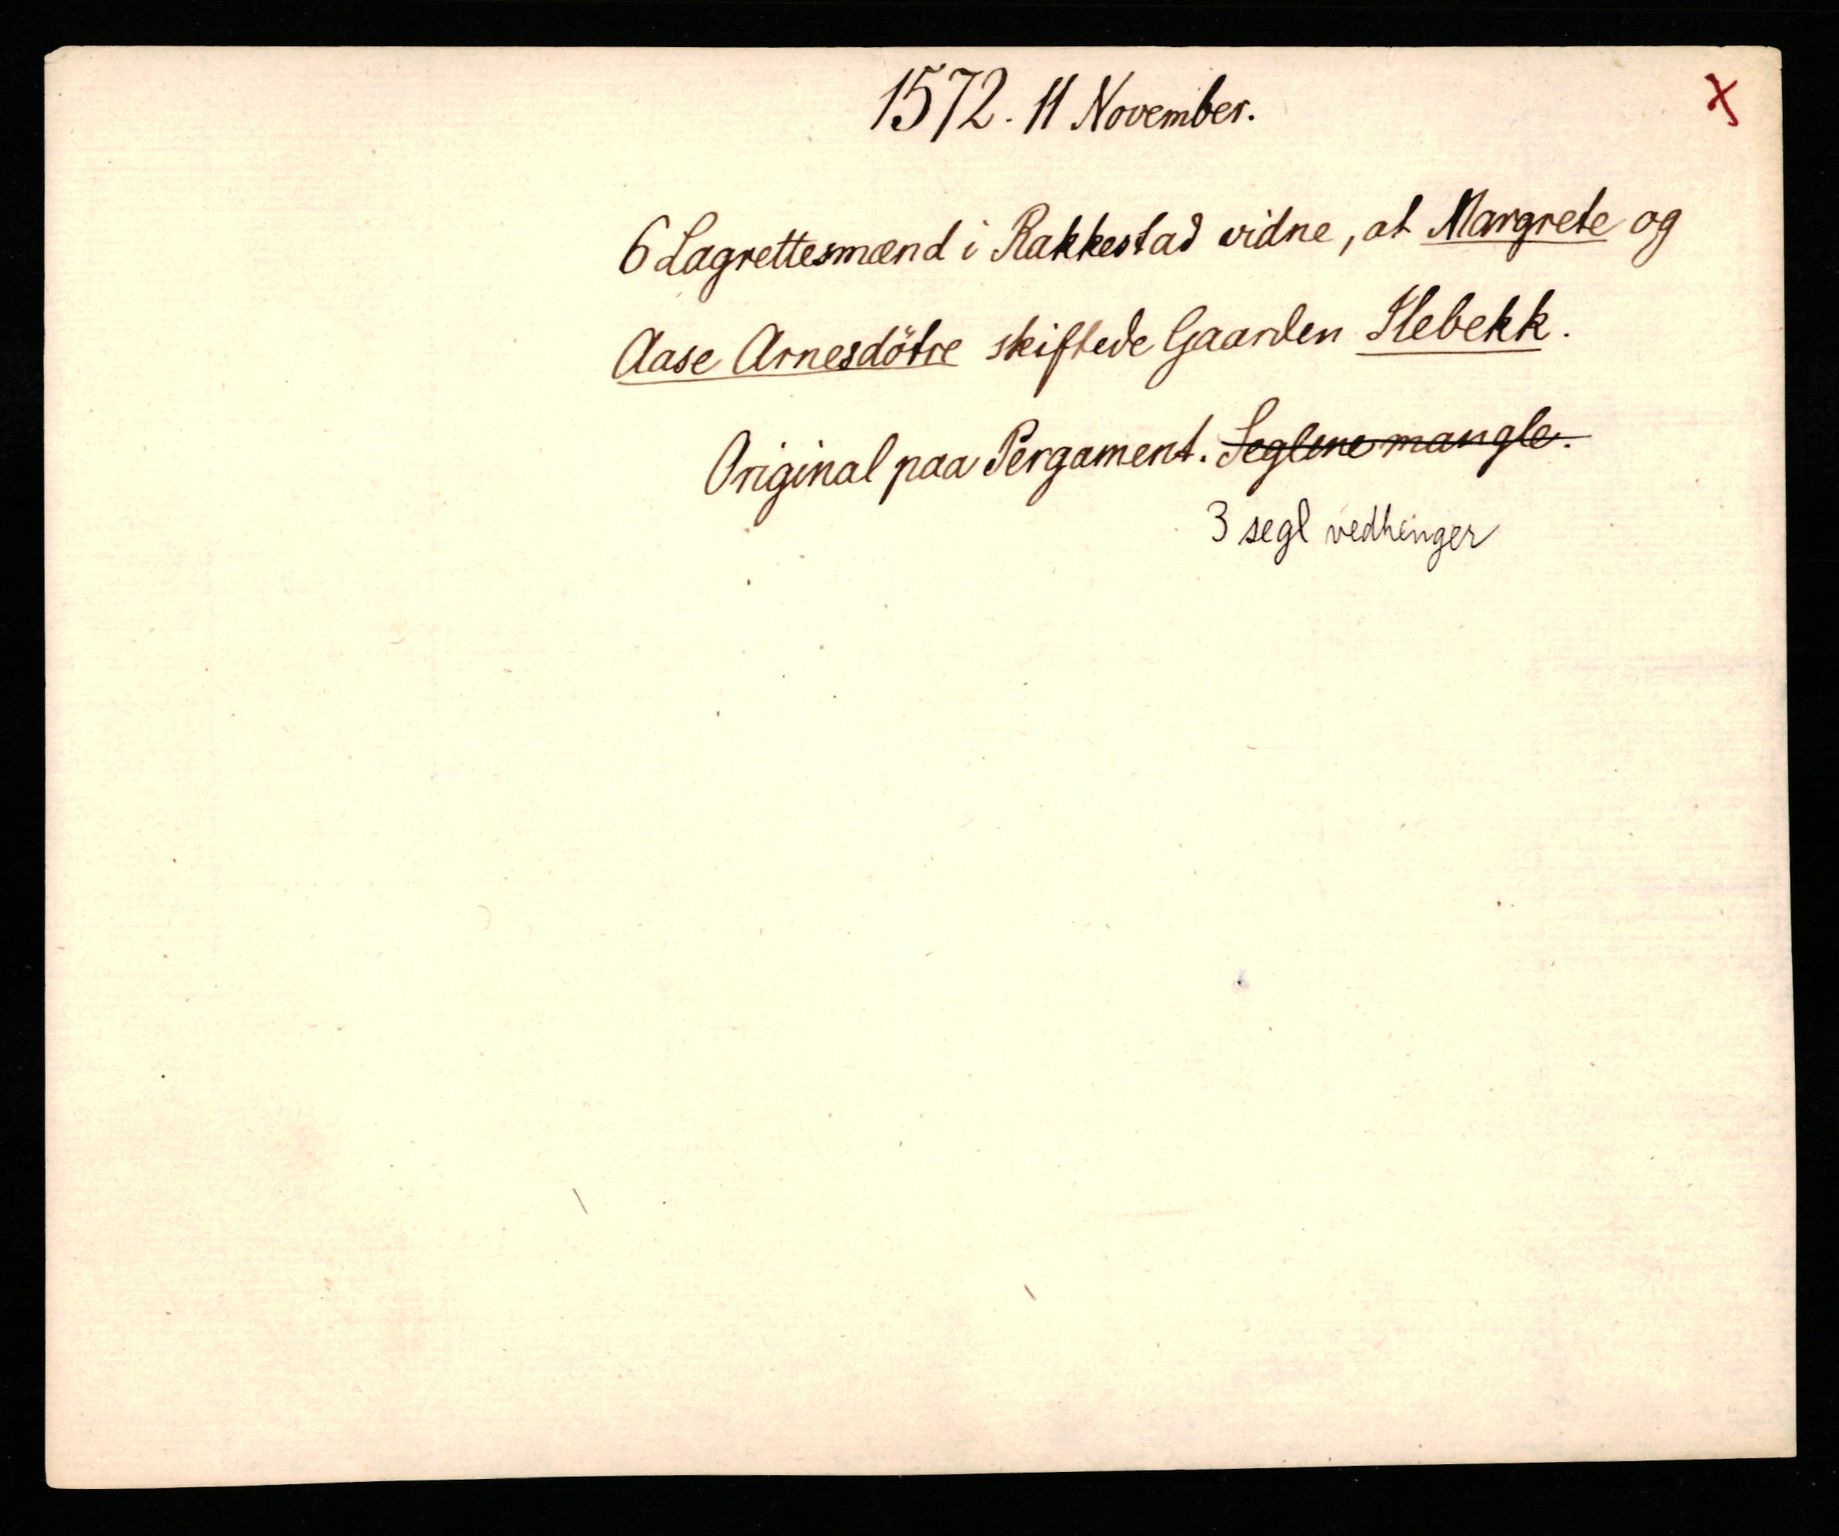 1572. 11 November. x
6 Lagrettesmænd i Rakkestad vidne, at Margrete og
Aase Arnesdötre skiftede Gaarden Ilebekk.
Original paa Pergament. Seglene mangle.
3 segl vedhenger